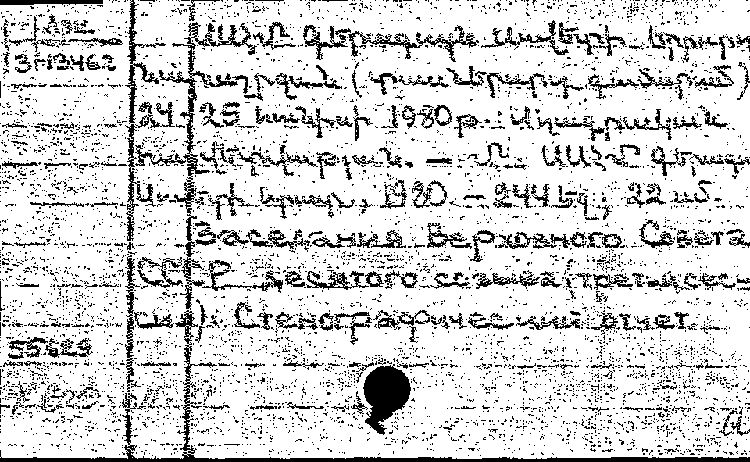 3-13462
ՍՍՀՄ Գերագույն Սովետի երրորդ
նստաշրջան (տասներորդ գումարում)
24-25 հունիսի 1980թ.: Սղագրական
հաշվետվություն. — Մ. ՍՍՀՄ Գերագ
Սովետի հրատ., 1980 — 244 էջ; 22 սմ.
Заседания Верховного Совета
СССР десятого созыва (третья сес-
сия): Стенографический отчет
55629